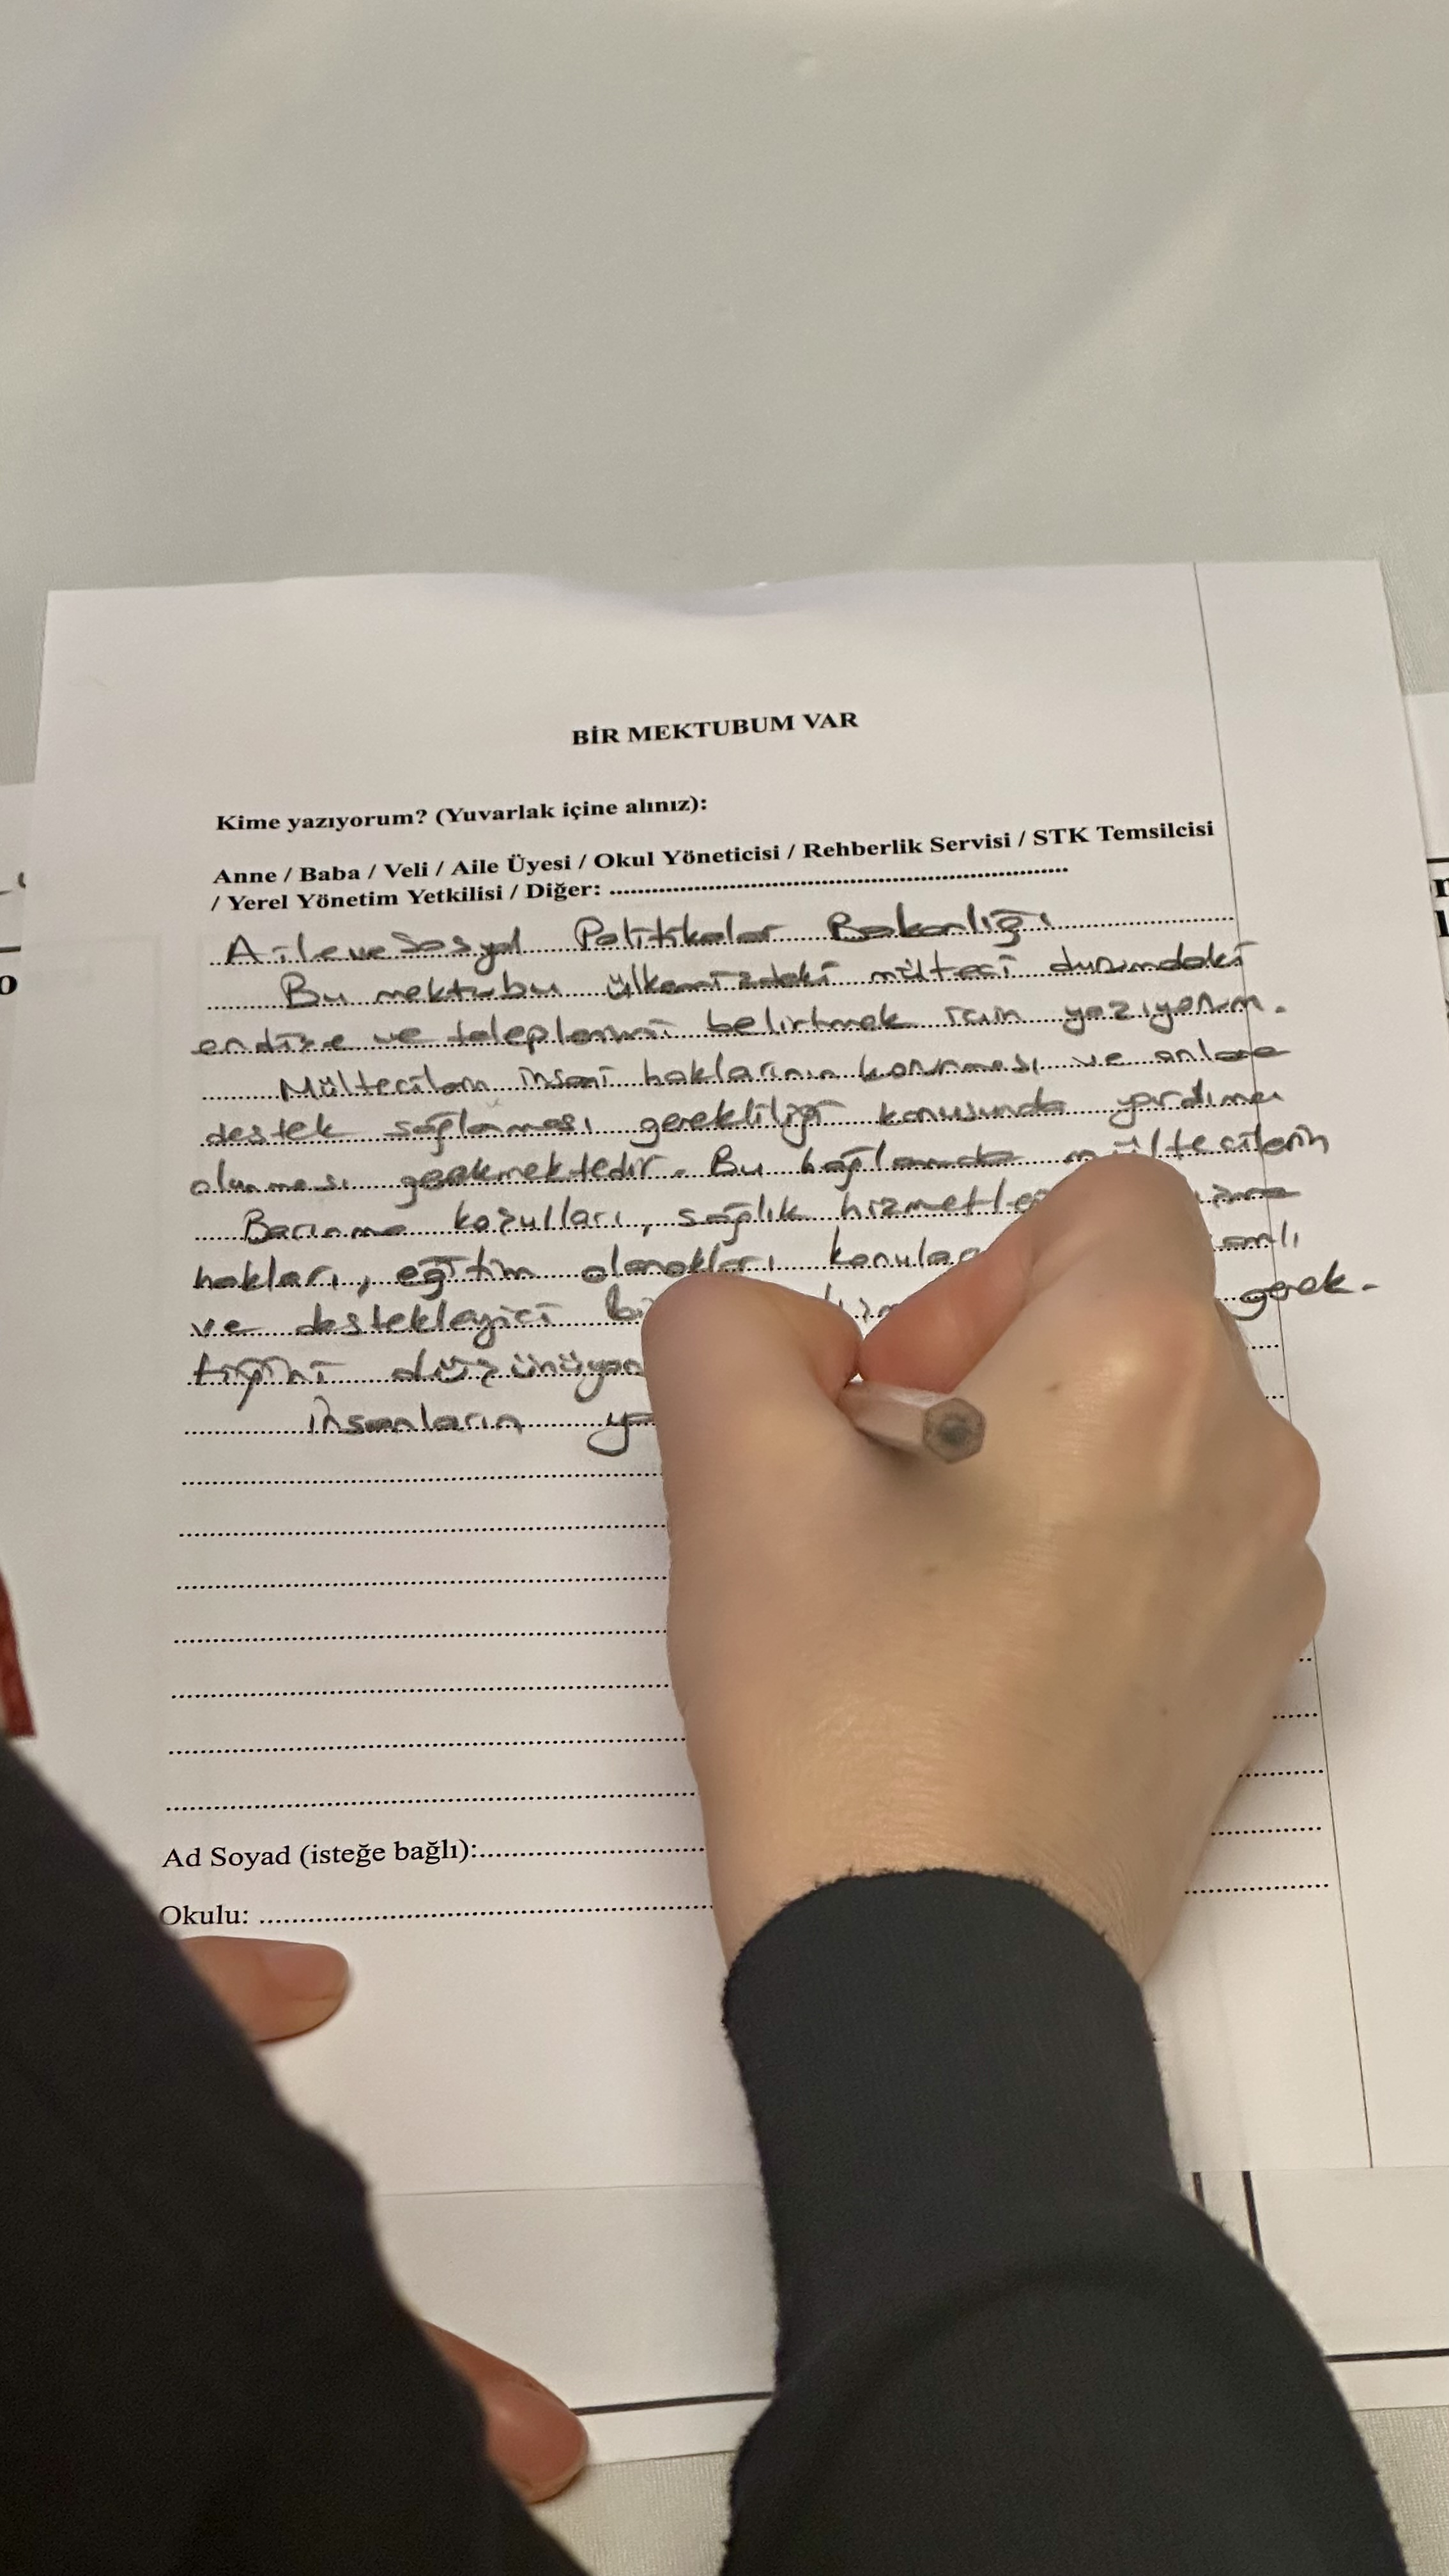 BİR MEKTUBUM VAR
Kime yazıyorum? (Yuvarlak içine alınız):
Anne / Baba / Veli / Aile Üyesi / Okul Yöneticisi / Rehberlik Servisi / STK Temsilcisi
/ Yerel Yönetim Yetkilisi / Diğer: ........................................
Aile ve Sosyal Politikalar Bakanlığı
Bu mektubu ülkemizdeki mülteci durumdaki
endişe ve taleplerimi belirtmek için yazıyorum.
Mültecilerin insani haklarının korunması ve onlara
destek sağlanması gerekliliği konusunda yardımcı
olunması gerekmektedir. Bu bağlamda mültecilerin
Barınma koşulları, sağlık
hakları, eğitim olanakları
ve destekleyici gerek-
tiğini
insanların
Ad Soyad (isteğe bağlı):
Okulu: